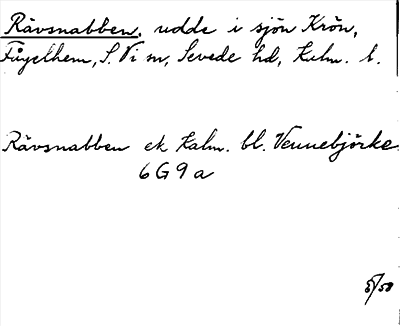 Rävsnabben, udde i sjön Krön,
Fågelhem, S. Vi sn, Sevede hd, Kalm. l.
Rävsnabben ek Kalm. bl. Vennebjörke
6G9a